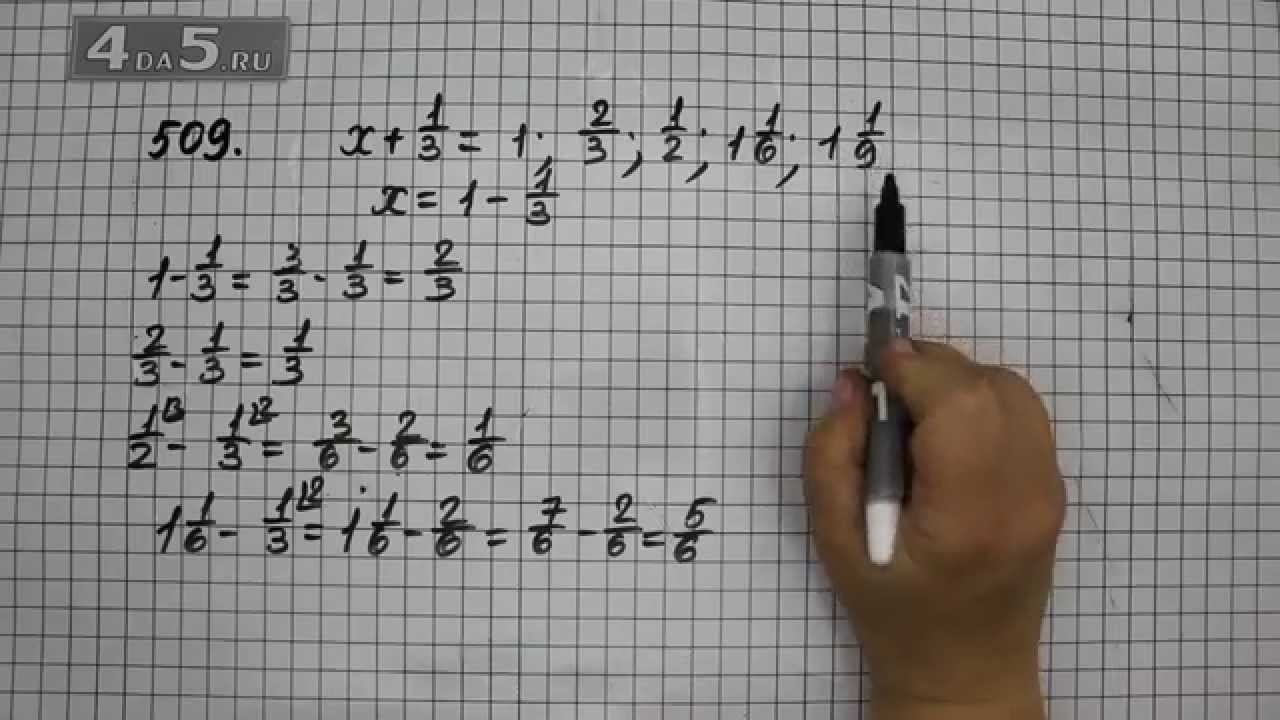 4DA5.RU
509. x + 1/3 = 1; 2/3; 1/2; 1 1/6; 1 1/9
x = 1 - 1/3
1 - 1/3 = 3/3 - 1/3 = 2/3
2/3 - 1/3 = 1/3
1/2 ⌊3 - 1/3 ⌊2 = 3/6 - 2/6 = 1/6
1 1/6 - 1/3 ⌊2 = 1 1/6 - 2/6 = 7/6 - 2/6 = 5/6